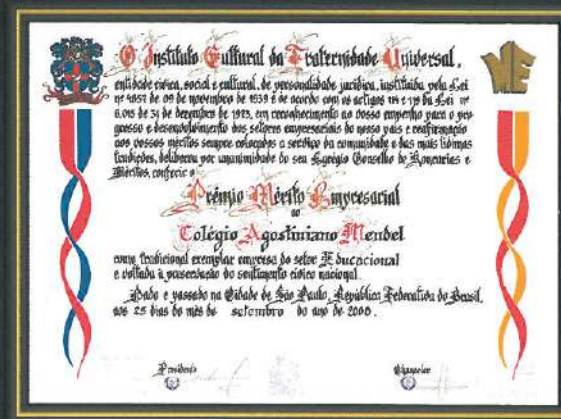 O Instituto Cultural da Fraternidade Universal,
entidade cívica, social e cultural, de personalidade jurídica, instituída pela Lei
nº de 09 de novembro de 1939 e de acordo com os artigos 114 e 119 da Lei nº
6.015 de 31 de dezembro de 1973, em reconhecimento ao vosso empenho para o pro
gresso e desenvolvimento dos setores empresariais do nosso país e reafirmação
aos vossos méritos sempre colocados a serviço da comunidade e das mais lídimas
tradições, deliberou por unanimidade do seu Egrégio Conselho de Honrarias e
Méritos, conferir o
Prêmio Mérito Empresarial
ao
Colégio Agostiniano Mendel
como tradicional exemplar empresa do setor Educacional
e voltada à preservação do sentimento cívico nacional.
Dado e passado na Cidade de São Paulo, República Federativa do Brasil,
aos 25 dias do mês de setembro do ano de 2000.
Presidente Chanceler